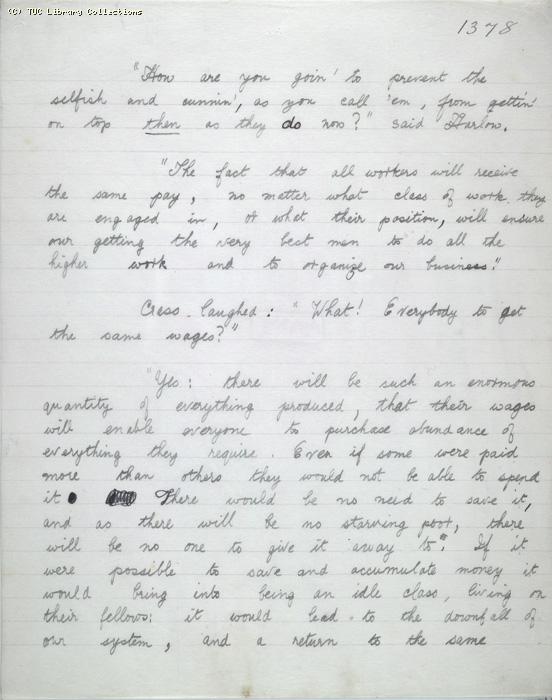 (C) TUC Library Collections
1378
"How are you goin' to prevent the
selfish and cunnin', as you call 'em, from gettin'
on top then as they do now?" said Harlow.
"The fact that all workers will receive
the same pay, no matter what class of work they
are engaged in, or what their position, will ensure
our getting the very best man to do all the
higher work and to organize our business."
Crass laughed: "What! Everybody to get
the same wages?"
"Yes: there will be such an enormous
quantity of everything produced, that their wages
will enable everyone to purchase abundance of
everything they require. Even if some were paid
more than others they would not be able to spend
it. There would be no need to save it,
and as there will be no starving poor, there
will be no one to give it away to. If it
were possible to save and accumulate money it
would bring into being an idle class, living on
their fellows: it would lead to the downfall of
our system, and a return to the same